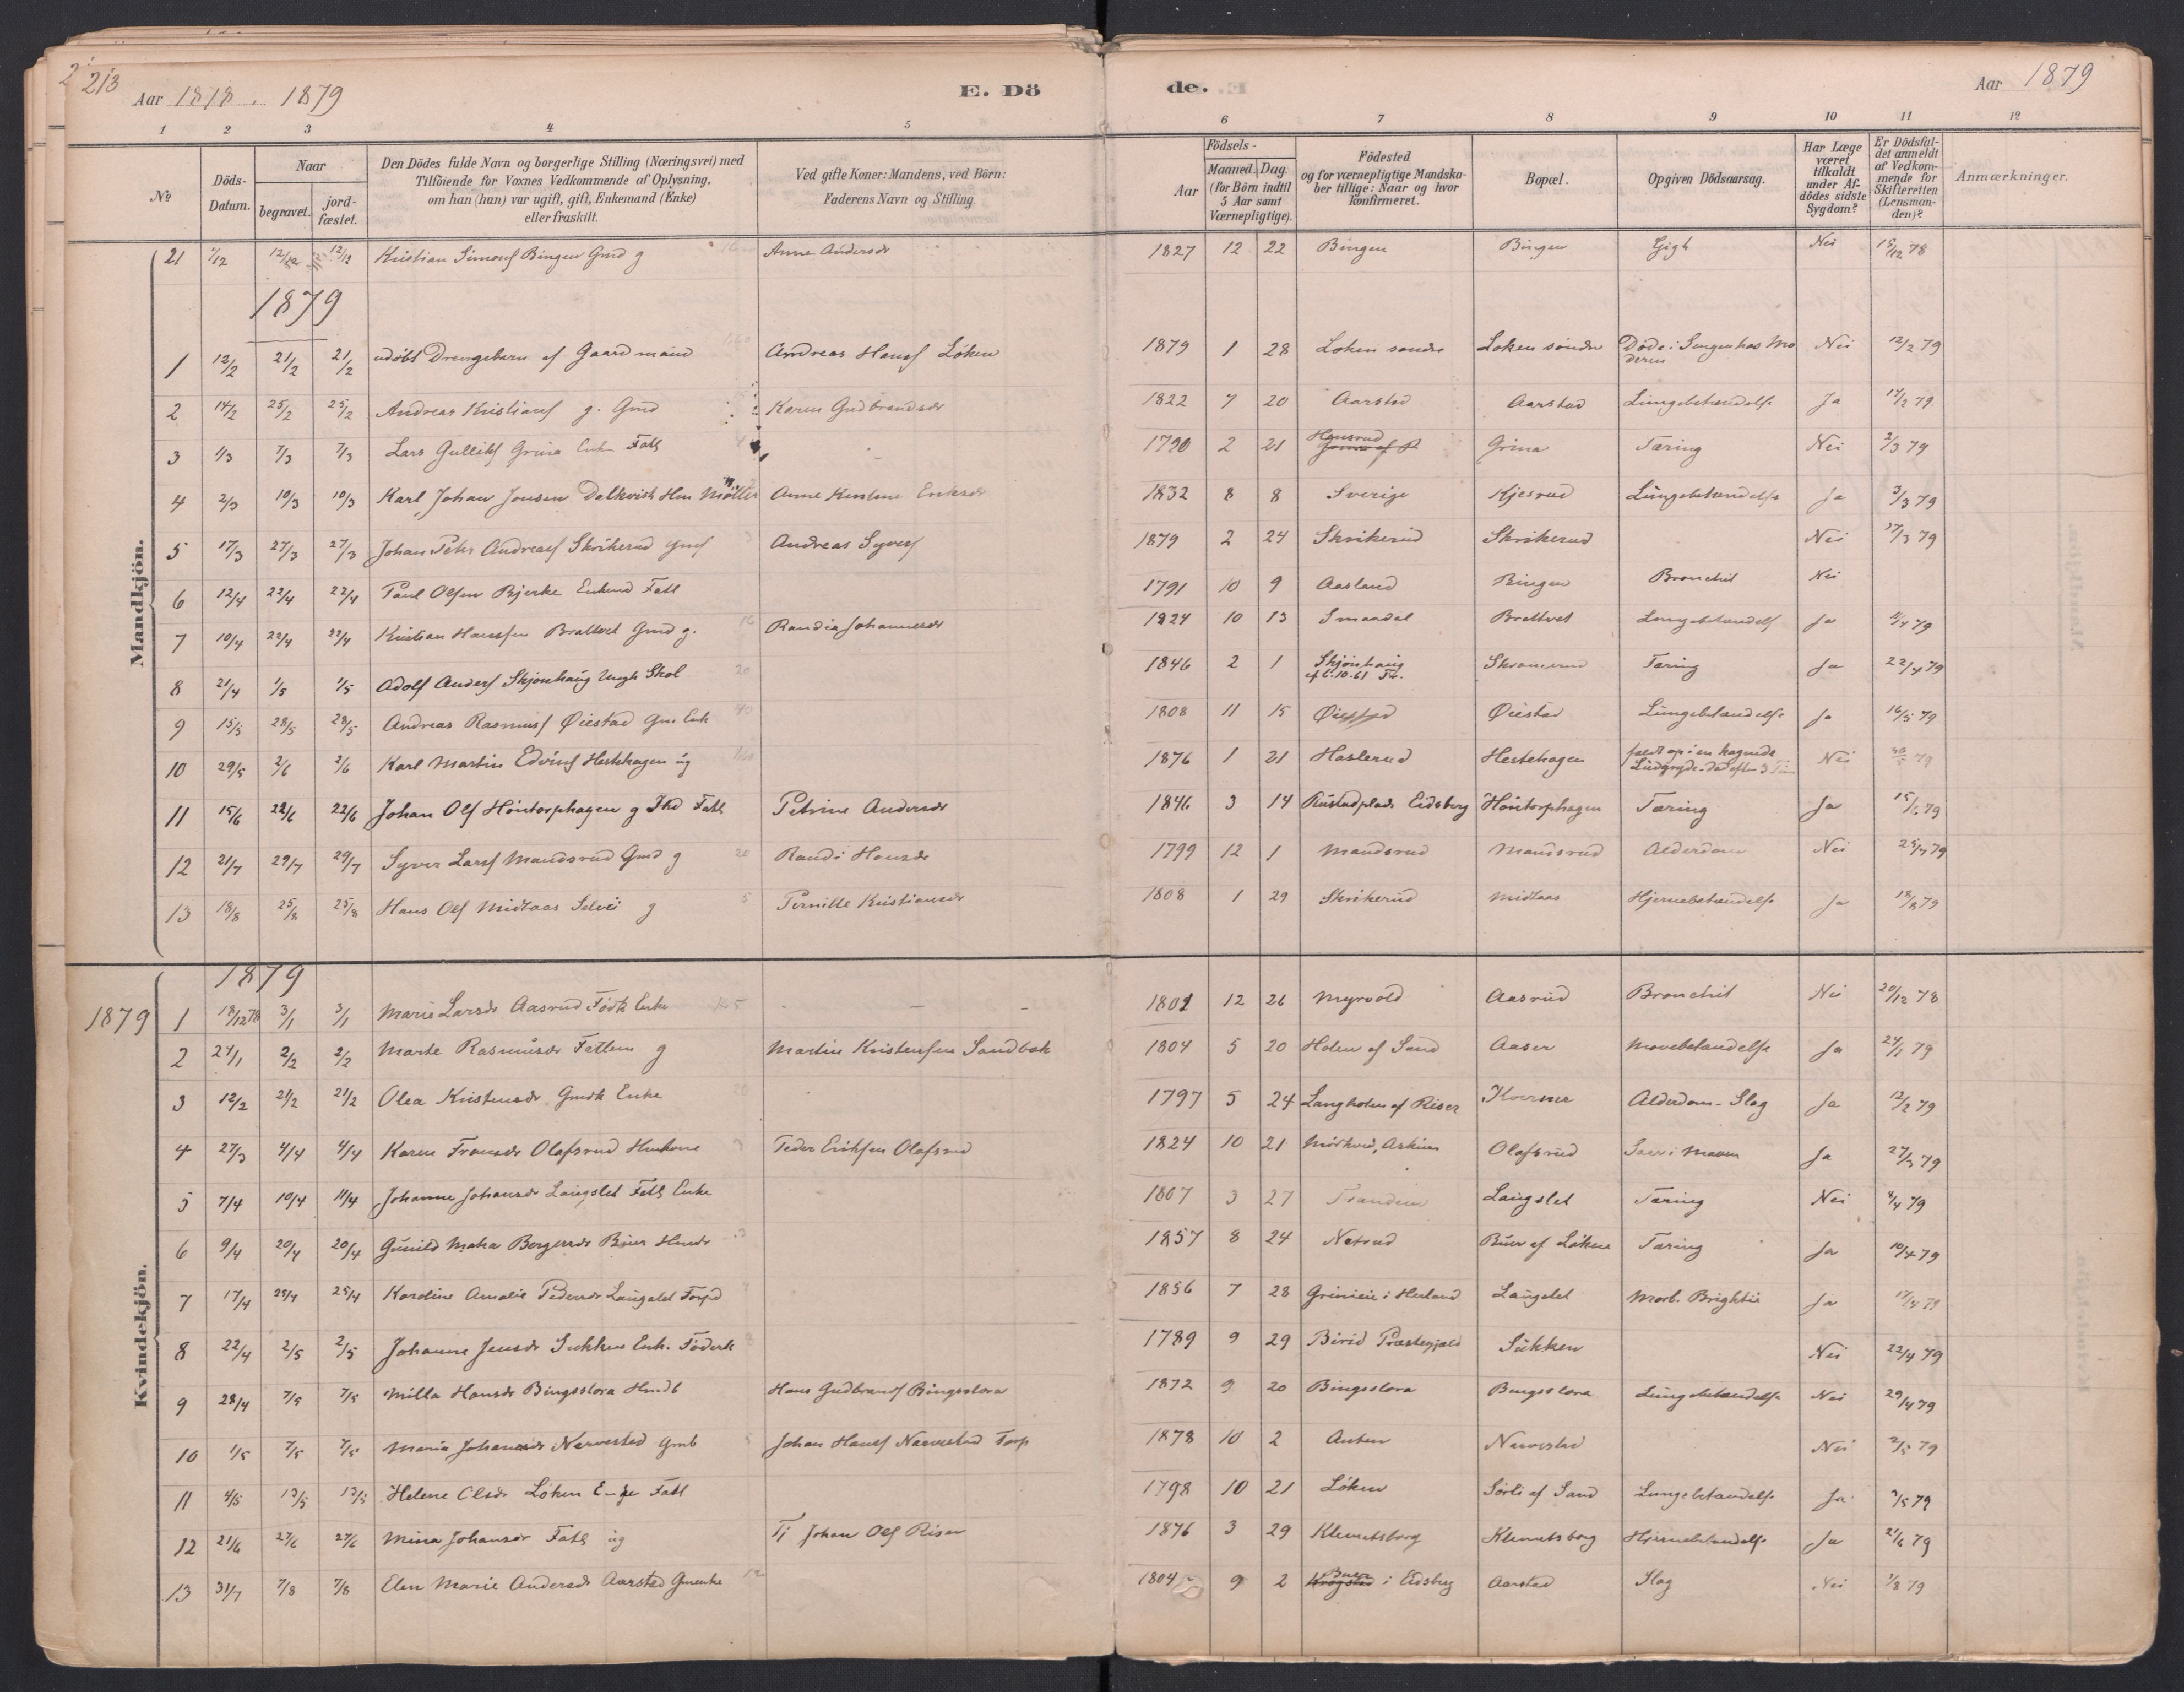 213
Aar 1878. 1879
E. Dö
de.
Aar 1879
1 2 3 4 5 6 7 8 9 10 11 12
№
Döds-
Datum.
Naar
begravet.
jord-
fæstet.
Den Dödes fulde Navn og borgerlige Stilling (Næringsvei) med
Tilföiende for Voxnes Vedkommende af Oplysning,
om han (hun) var ugift, gift, Enkemand (Enke)
eller fraskilt.
Ved gifte Koner: Mandens, ved Börn:
Faderens Navn og Stilling.
Födsels-
Aar
Maaned. Dag.
(for Börn indtil
5 Aar samt
Værnepligtige).
Födested
og for værnepligtige Mandska-
ber tillige: Naar og hvor
konfirmeret.
Bopæl.
Opgiven Dödsaarsag.
Har Læge
været
tilkaldt
under Af-
dödes sidste
Sygdom?
Er Dödsfal-
det anmeldt
af Vedkom-
mende for
Skifteretten
(Lensman-
den)?
Anmærkninger.
Mandkjön.
21 12/12 12/12 Kristian Simons Bingen Gmd g Anne Andersdr 1827 12 22 Bingen Bingen Gigt Nei 15/12 78
1879
1 12/2 21/2 21/2 udöbt Drengebarn af Gaardmand Andreas Hansf Löken 1879 1 28 Löken söndre Löken söndre Döde i Sengen hos Mo Nei 12/2 79
deren
2 14/2 25/2 25/2 Andreas Kristiansf g. Gmd Karen Gudbrandsdr 1822 7 20 Aarstad Aarstad Lungebetændelse Ja 17/2 79
3 1/3 7/3 7/3 Lars Gulliksf Grina Enkm Fattl 1790 2 21 Hansrud Grina Tæring Nei 3/3 79
4 2/3 10/3 10/3 Karl Johan Jonsen Dalkvist Hm Möller Anne Eriksdr 1832 8 8 Sverige Kjesrud Lungebetændelse Ja 3/3 79
5 17/3 27/3 27/3 Johan Peter Andreasf Skrikerud Andreas Syversf 1879 2 24 Skrikerud Skrikerud Nei 17/3 79
6 12/4 22/4 22/4 Paul Olsen Bjerke Enkmd Fattl 1791 10 9 Aasland Bingen Bronchit Nei
7 10/4 22/4 22/4 Kristian Hanssen Brattvet Gmd g. Randia Johannesdr 1824 10 13 Smaadal Brattvet Lungebetændelse Ja 11/4 79
8 21/4 1/5 1/5 Adolf Andersf Skjönhaug Ungk Skol 1846 2 1 Skjönhaug Tæring Ja 22/4 79
cf 6-10-61 Tr.
9 15/5 28/5 28/5 Andreas Rasmusf Öiestad Gm Enk 1808 11 15 Öiestad Öiestad Lungebetændelse Ja 16/5 79
10 29/5 2/6 2/6 Karl Martin Edvinsf Hestehagen ug 1876 1 21 Haslerud Hestehagen faldt op i en kogende Nei 79
Ludgryde. Död efter 3
11 15/6 22/6 22/6 Johan Olsf Höntorphagen g Ihd Fattl Petrine Andersdr 1846 3 14 Rustadplads Eidsberg Höntorphagen Tæring Ja 15/6 79
12 21/7 29/7 29/7 Syver Larsf Mandsrud Gmd g Randi Hansdr 1799 12 1 Mandsrud Mandsrud Alderdom Nei 79
13 18/8 25/8 25/8 Hans Olsf Midtaas Selvei g Pernille Kristiansdr 1808 1 29 Skrikerud Midtaas Hjernebetændelse Ja 18/8 79
Kvindekjön.
1879
1879 1 18/12 78 3/1 3/1 Marie Larsdr Aasrud Födk Enke 1801 12 26 Myrvold Aasrud Bronchit Nei 20/12 78
2 24/1 2/2 2/2 Marte Rasmusdr Fattlem g Martin Kristensen Sandbæk 1804 5 20 Holen af Sand Aaser Mavebetændelse Ja 24/1 79
3 12/2 21/2 21/2 Olea Kristensdr Gmdk Enke 1797 5 24 Langholen af Riser Kverner Alderdom-Slag Ja 12/2 79
4 27/3 4/4 4/4 Karen Fransdr Olafsrud Huskone Peder Eriksen Olafsrud 1824 10 21 Mörkved, Askim Olafsrud Saar i Maven Ja 27/3 79
5 7/4 10/4 11/4 Johanne Johansdr Langslet Fattl Enke 1807 3 27 Langslet Tæring Nei 8/4 79
6 9/4 20/4 20/4 Gunild Maha Borgersdr Buer Hmdr 1857 8 24 Natrud Buer af Löken Tæring Ja 10/4 79
7 17/4 25/4 25/4 Karoline Amalie Pedersdr Langslet Torpd 1856 7 28 Grinieie i Herland Langslet Morb. Brightii Ja 17/4 79
8 22/4 2/5 2/5 Johanne Jensdr Sukken Enk. Föderk 1789 9 29 Birid Præstegjæld Sukken Nei 22/4 79
9 28/4 7/5 7/5 Milla Hansdr Bingsstora Hmdb Hans Gudbrandsf Bingsstora 1872 9 20 Bingsstora Bingsstora Lungebetændelse Nei 29/4 79
10 1/5 7/5 7/5 Maria Johansdr Narvestad Gmb Johan Hansf Narvestad Torp 1878 10 2 Anten Narvestad Nei 2/5 79
11 4/5 13/5 13/5 Helene Olsdr Löken Enke Fattl 1798 10 21 Löken Sörli af Sand Lungebetændelse Ja 79
12 21/6 27/6 27/6 Mina Johansdr Fattl ug Tj Johan Olsf Riser 1876 3 29 Klemetsborg Klemetsborg Hjernebetændelse Ja 21/6 79
13 31/7 7/8 7/8 Elen Marie Andersdr Aarstad Gmenke 1804 9 2 i Eidsberg Aarstad Slag Nei 1/8 79